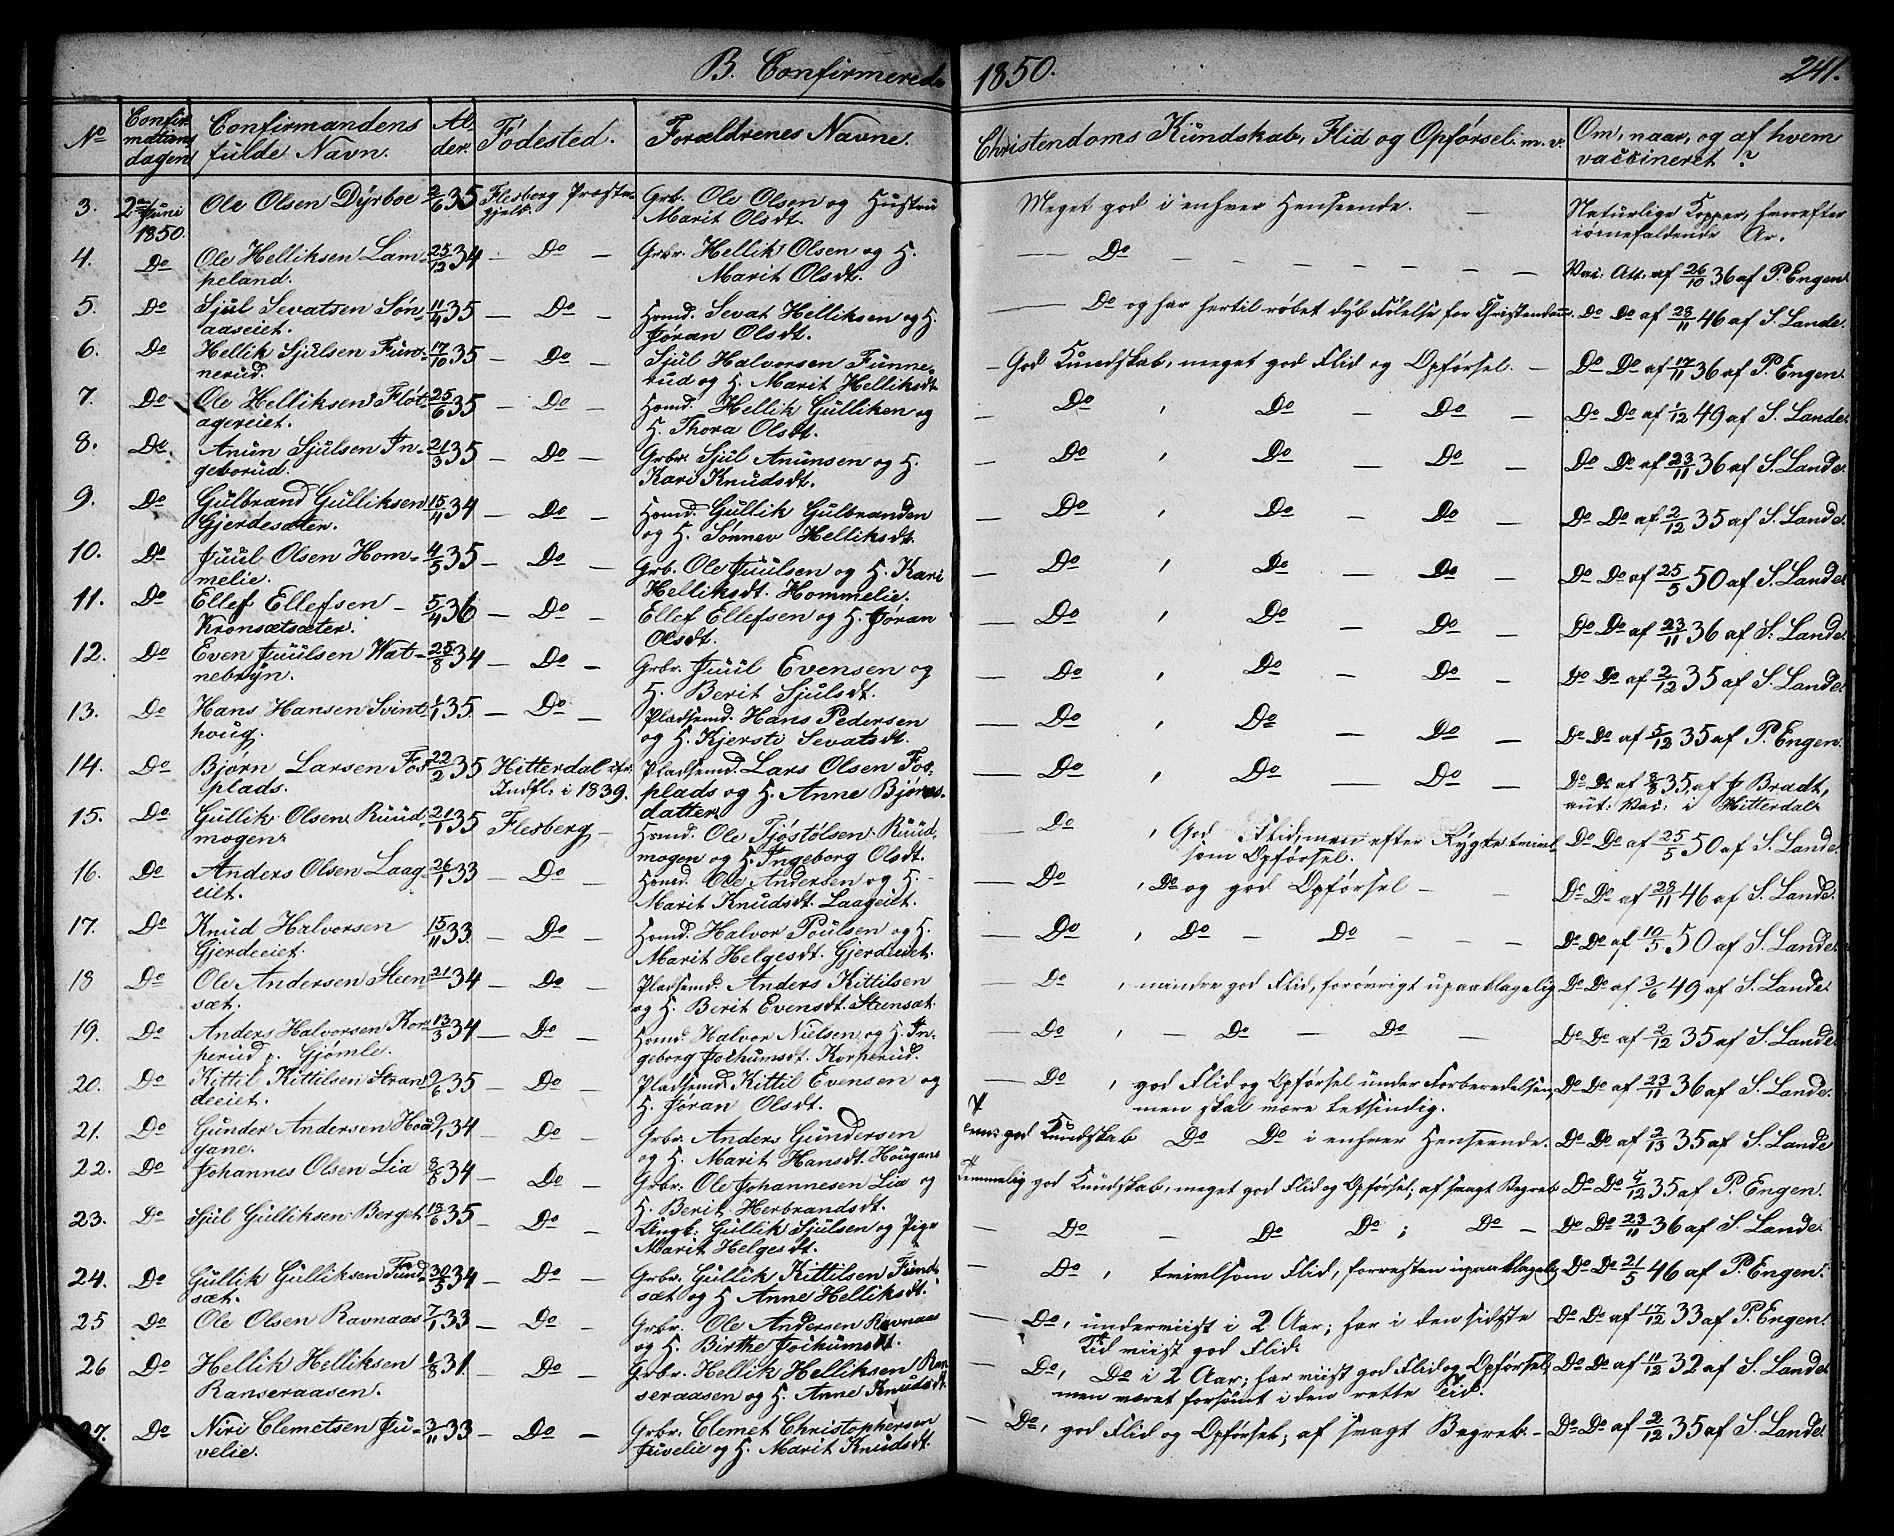 B. Confirmerede 1850. 241.
No Confirmationsdagen Confirmandens fulde Navn. Alder. Födested. Forældrenes Navne. Christendoms Kundskab, Flid og Opførsel. m. v. Om, naar, og af hvem vaccineret?
3. 2den Juni 1850. Ole Olsen Dyrboe 2/6 35 Flesberg Præstegjeld. Grb. Ole Olsen og Hustru Marit Olsdt. Meget god i enhver Henseende. — Naturlige Kopper, hvorefter iøinefaldende Ar.
4. Do Ole Helliksen Lampeland. 25/12 34 — Do — Grbr. Hellik Olsen og H. Marit Olsdt. — Do — — — — Vac. Att. af 26/10 36 af P. Engen.
5. Do Sjul Sevatsen Sønaaseiet. 11/4 35 — Do — Hsmd. Sevat Helliksen og H. Jöran Olsdt. — Do og har hertil röbet dyb Fölelse for Christendom. Do Do af 28/11 46 af S. Lande.
6. Do Hellik Sjulsen Funnerud. 17/10 35 — Do — Sjul Halvorsen Funnerud og H. Marit Helliksdt. — God Kundskab, meget god Flid og Opførsel. — Do Do af 17/11 36 af P. Engen.
7. Do Ole Helliksen Flötagereiet. 25/6 35 — Do — Hsmd. Hellik Gulliken og H. Thora Olsdt. — Do , Do — Do — Do Do af 1/12 49 af S. Lande.
8. Do Anun Sjulsen Ingeborud. 21/3 35 — Do — Grbr. Sjul Anunsen og H. Kari Knudsdt. — Do , Do — Do — Do Do af 23/11 36 af S. Lande.
9. Do Gulbrand Gulliksen Gjerdesæter. 15/11 34 — Do — Hsmd. Gullik Gulbranden og H. Sønnev Helliksdt. — Do , Do — Do — Do Do af 2/12 35 af S. Lande.
10. Do Juul Olsen Hommelie. 4/5 35 — Do — Grb. Ole Juulsen og H. Kari Helliksdt. Hommelie. — Do , Do — Do — Do Do af 25/5 50 af S. Lande.
11. Do Ellef Ellefsen Kronsætsæter. 5/4 36 — Do — Ellef Ellefsen og H. Jöran Olsdt. — Do , Do — Do — Do Do af 23/11 36 af S. Lande.
12. Do Even Juulsen Watnebryn. 25/8 34 — Do — Grbr. Juul Evensen og H. Berit Sjulsdt. — Do , Do — Do — Do Do af 2/12 35 af S. Lande.
13. Do Hans Hansen Svinthoug. 1/1 35 — Do — Pladsemd. Hans Pedersen og H. Kjersti Sevatsdt. — Do , Do — Do — Do Do af 5/12 35 af P. Engen.
14. Do Bjørn Larsen Fosplads. 22/2 35 Hitterdal Indfl. i 1839. Pladsemd. Lars Olsen Fosplads og H. Anne Bjørnsdatter. — Do , Do — Do — Do Do af 8/8 35 af J Bradt, aut. Vac. i Hitterdal.
15. Do Gullik Olsen Ruudmogen. 21/1 35 Flesberg — Hsmd. Ole Tjöstolsen Ruudmogen og H. Ingeborg Olsdt. — Do , God Flid, men efter Rygte tvivlsom Opførsel. Do Do af 25/5 50 af S. Lande.
16. Do Anders Olsen Laageiet. 26/1 33 — Do — Hsmd. Ole Andersen og H. Marit Knudsdt. Laageiet. — Do , Do og god Opførsel — — Do Do af 28/11 46 af S. Lande.
17. Do Knud Halvorsen Gjerdeeiet. 15/11 33 — Do — Hsmd. Halvor Poulsen og H. Marit Helgesdt. Gjerdeeiet. — Do , Do — Do — — — Do Do af 10/5 50 af S. Lande.
18 Do Ole Andersen Steensæt. 21/1 34 — Do — Pladsemd. Anders Kittilsen og H. Berit Evensdt. Steensæt. — Do , mindre god Flid, forøvrigt upaaklagelig Do Do af 3/6 49 af S. Lande.
19. Do Anders Halvorsen Korperud p. Gjømle. 13/3 34 — Do — Hsmd. Halvor Nielsen og H. Ingeborg Jochumsdt. Korperud. — Do , — Do — Do — Do Do af 2/12 35 af S. Lande.
20. Do Kittil Kittilsen Strandeeiet. 9/6 35 — Do — Pladsemd. Kittil Evensen og H. Jöran Olsdt. — Do , god Flid og Opførsel under Forberedelsen, men skal være letsindig. Do Do af 23/11 36 af S. Lande.
21. Do Gunder Andersen Hougane. 9/1 34 — Do — Grbr. Anders Gundersen og H. Marit Hansdt. Hougane god Kundskab Do Do i enhver Henseende. Do Do af 2/13 35 af S. Lande
22. Do Johannes Olsen Lia 8/8 34 — Do — Grbr. Ole Johannesen Lia og H. Berit Herbrandsdt. Temmelig god Kundskab, meget god Flid og Opførsel; af svagt Begreb Do Do 5/12 35 af P. Engen.
23. Do Sjul Gulliksen Berget 18/6 35 — Do — Ungk. Gullik Sjulsen og Pige Marit Helgesdt. — Do — Do Do ; Do — Do Do 23/11 36 af S. Lande.
24. Do Gullik Gulliksen Fundsæt. 30/5 34 — Do — Grbr. Gullik Kittilsen Fundsæt og H Anne Helliksdt. — Do , tvivlsom Flid, forresten upaaklagelig Do Do 21/5 46 af P. Engen.
25 Do Ole Olsen Ravnaas 7/1 33 — Do — Grbr. Ole Andersen Ravnaas og H. Birthe Jochumsdt. — Do, underviist i 2 Aar; har i den sidste Tid viist god Flid. Do Do af 17/12 33 af P. Engen.
26 Do Hellik Helliksen Ranseraasen. 1/8 31. — Do — Grbr. Hellik Helliksen Ranseraasen og H. Anne Knudsdt. — Do, Do i 2 Aar; har viist god Flid og Opførsel, men været forsømt i den rette Tid. Do Do af 11/12 32 af S. Lande.
27. Do Niri Clemetsen Juvelie. 3/11 33 — Do — Grbr. Clemet Christophersen Juvelie og H. Marit Knudsdt. — Do, god Flid og Opførsel; af svagt Begreb. — Do Do af 2/12 35 af S. Lande.